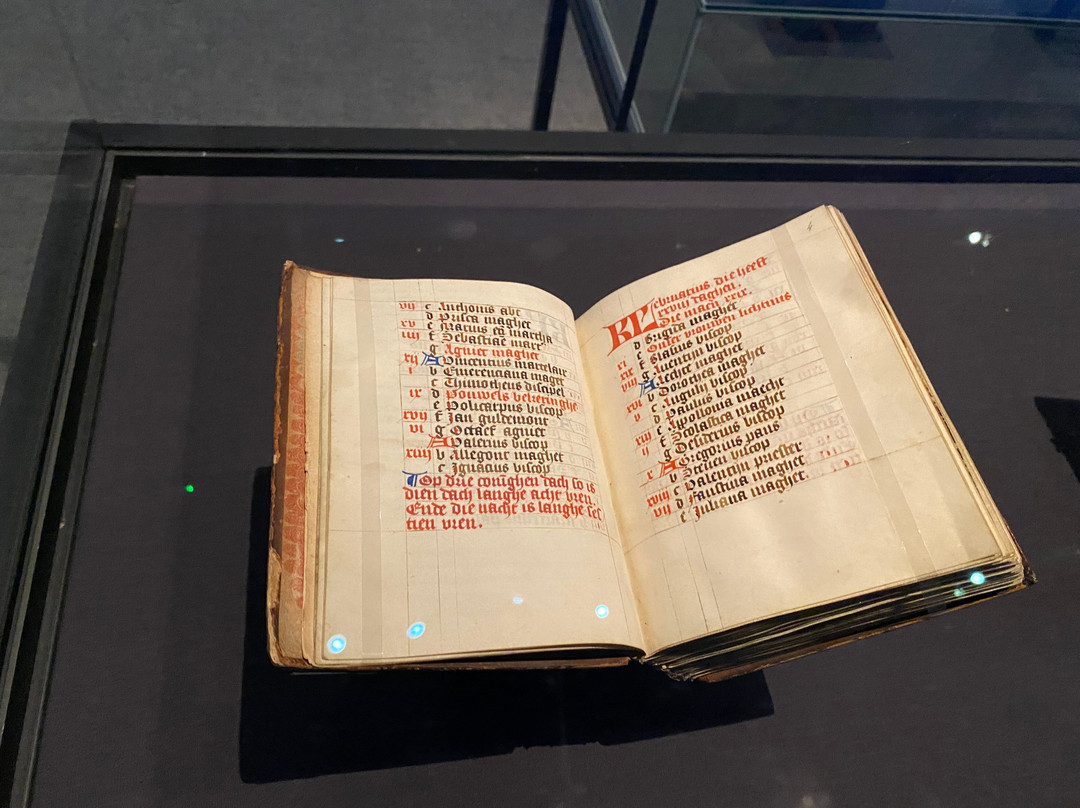 vii c Anthonis abt
d Prisca maghet
xv e Marius en martha
iiii f Sebastiae mart'
g Agniet maghet
xij A Vincentius martelaer
i b Emerenciana maget
c Thimotheus discipel
ix d Pouwels bekeringhe
e Policarpus biscop
xvij f Jan guldemont
vi g Octaef agniet
A Valerius biscop
xiiij b Allegont maghet
c Ignacius biscop
Top drie conighen dach so is
dien dach langhe acht vren.
Ende die nacht is langhe ses
tien vren.
4
KL Februarius die heeft
xxviij daghen.
Die maen xxix.
d Brigita maghet
xi e Onser vrouwen lichtmis
xix f Blasius biscop
viij g Auentijn biscop
A Aechte maghet
xvi b Dorothea maghet
v c Augulij biscop
d Paulus biscop
xiij e Appollonia maecht
ij f Scolastica maghet
g Desiderius biscop
x A Gregorius paus
b biscop
xviij c Valentijn priester
vij d Faustina maghet
e Juliana maghet.